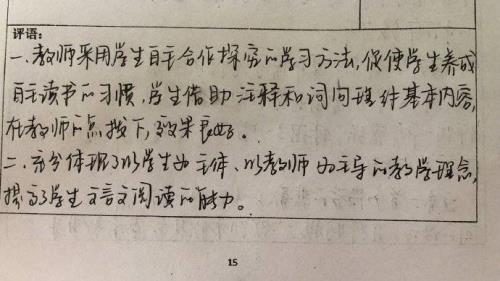 评语:
一.教师采用学生自主合作探究的学习方法,促使学生养成
自主读书的习惯.学生借助注释和词句理解基本内容,
在教师的点拨下,效果良好.
二.充分体现了以学生为主体、以教师为主导的教学理念,
提高了学生文言文阅读的能力。
15